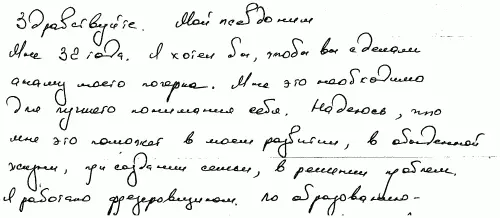 Здравствуйте. Мой псевдоним
Мне 32 года. Я хотел бы, чтобы вы сделали
анализ моего почерка. Мне это необходимо
для лучшего понимания себя. Надеюсь, что
мне это поможет в моем развитии, в обыденной
жизни, при создании семьи, в решении проблем.
Я работаю фрезеровщиком. По образованию-